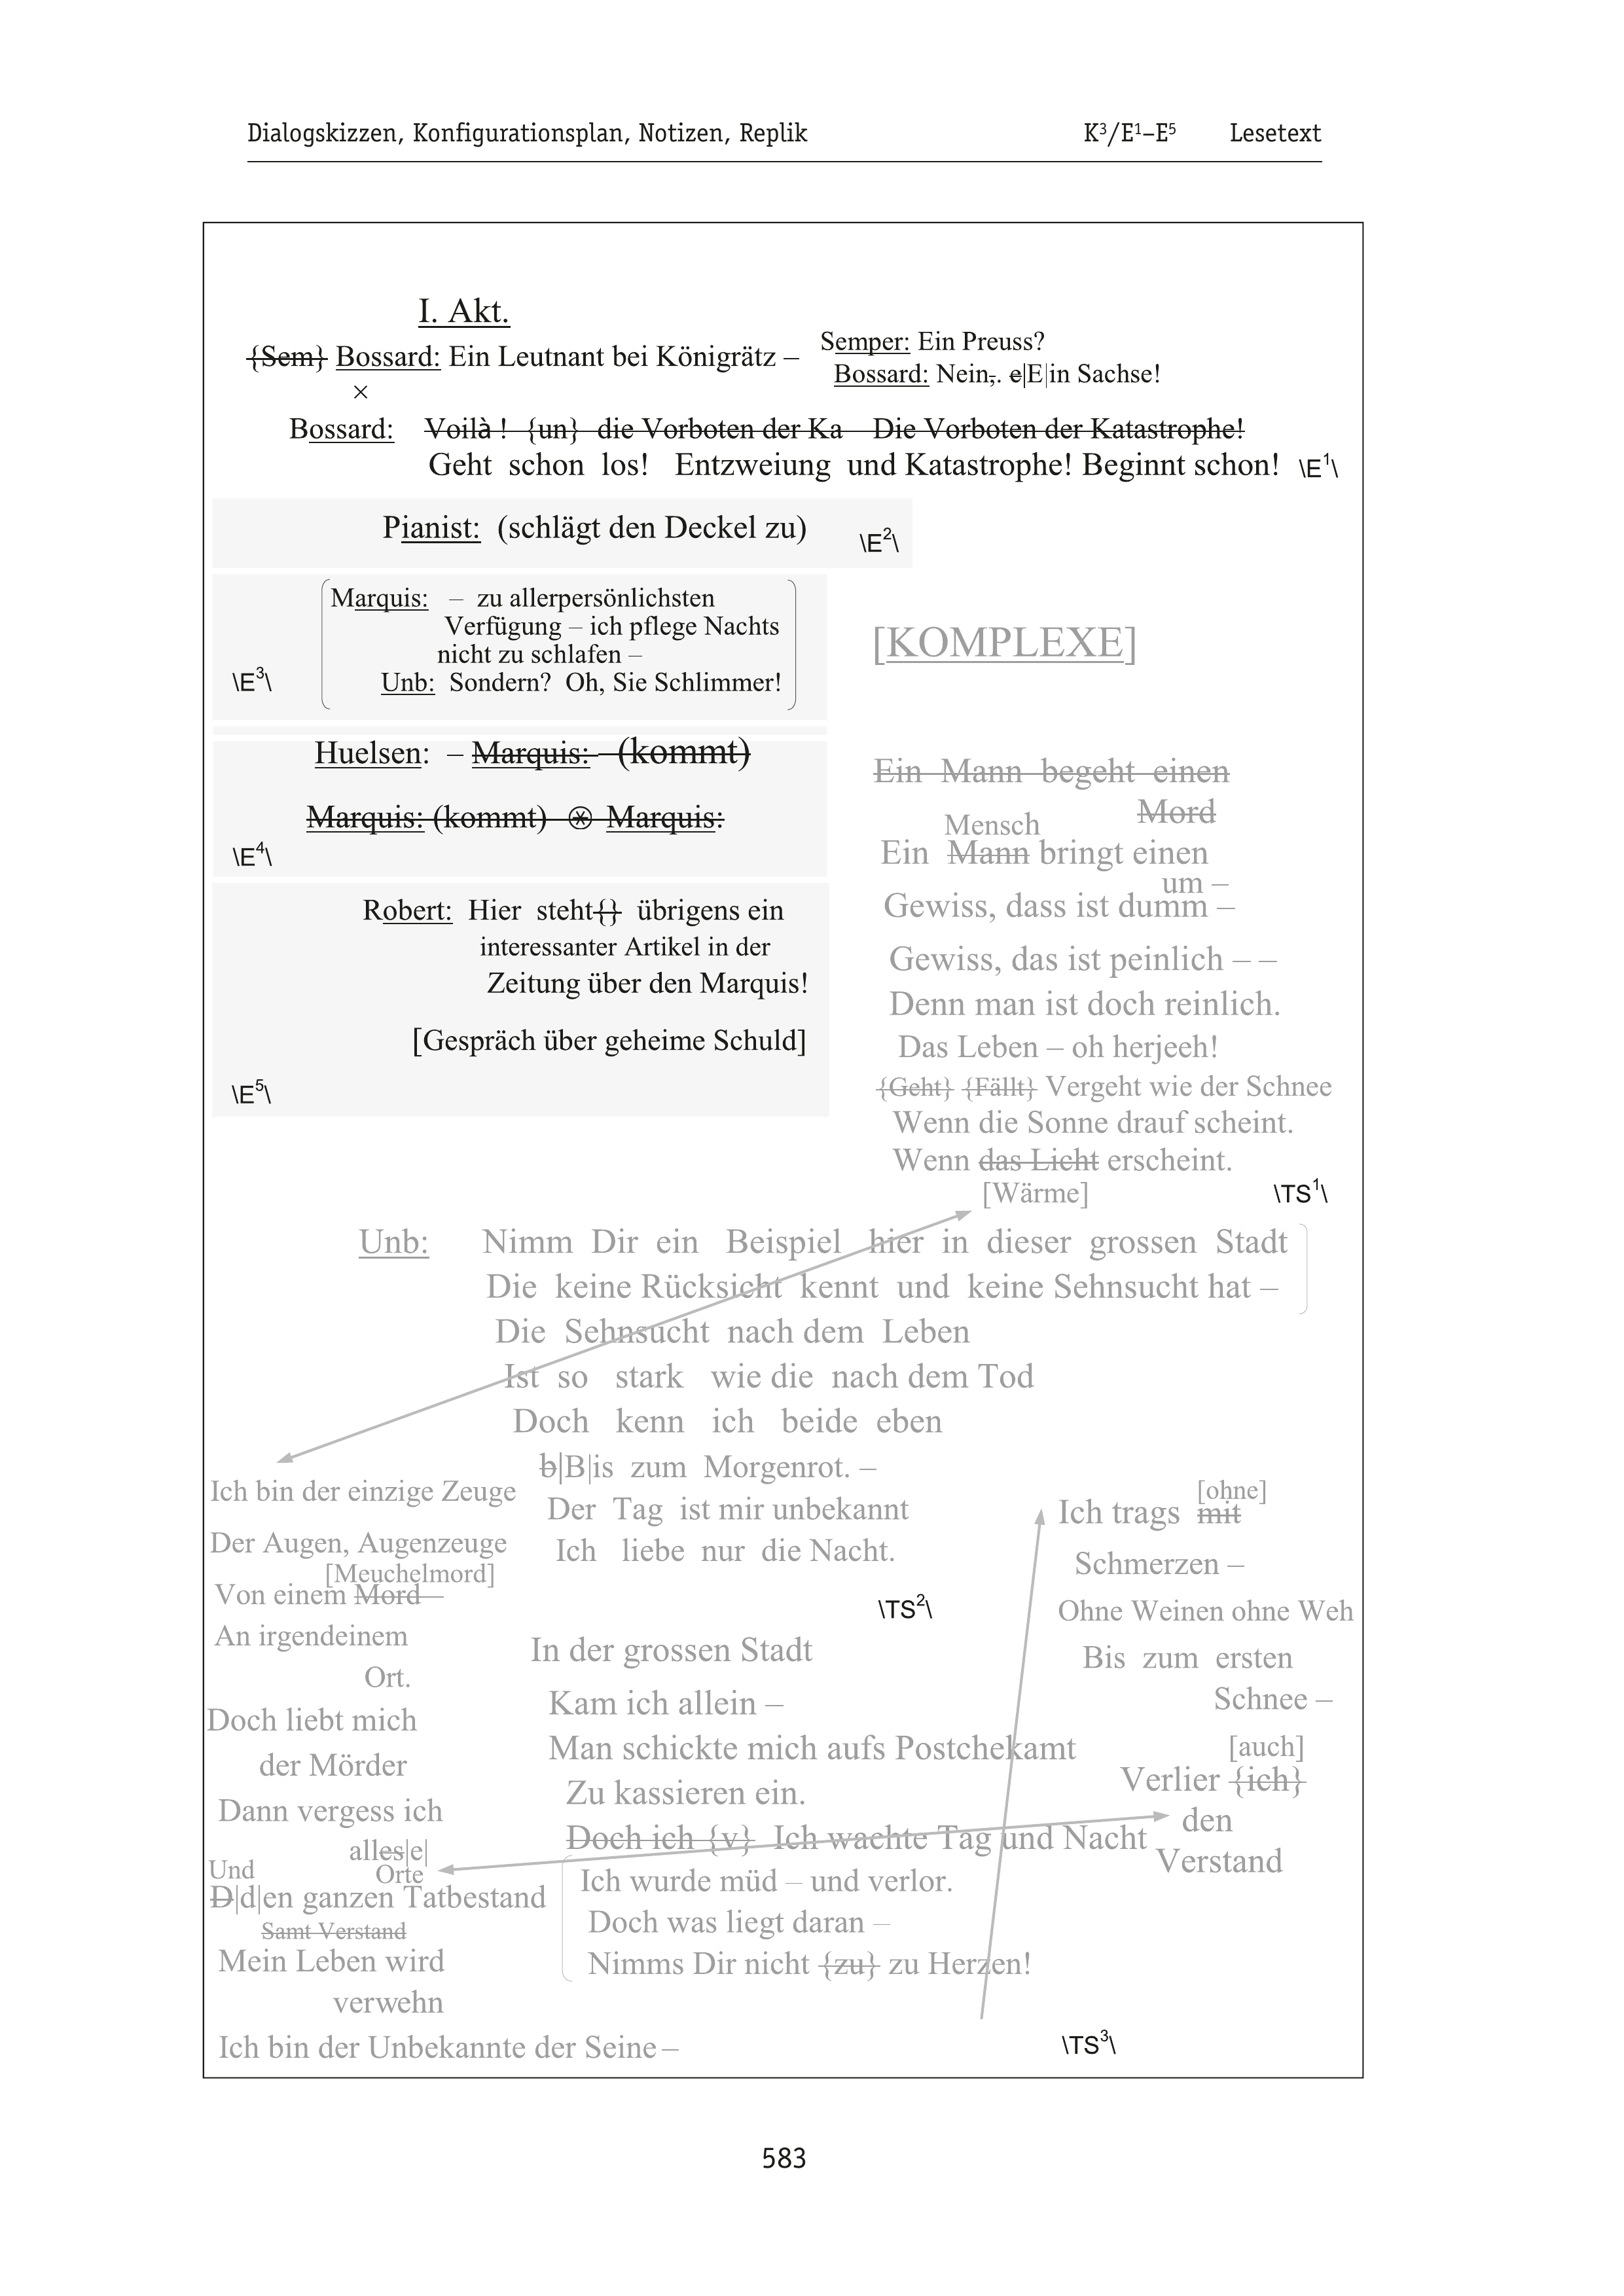 Dialogskizzen, Konfigurationsplan, Notizen, Replik K³/E¹–E⁵ Lesetext
I. Akt.
{Sem} Bossard: Ein Leutnant bei Königrätz –
Semper: Ein Preuss?
Bossard: Nein,. e|E|in Sachse!
×
Bossard: Voilà ! {un} die Vorboten der Ka Die Vorboten der Katastrophe!
Geht schon los! Entzweiung und Katastrophe! Beginnt schon! \E¹\
Pianist: (schlägt den Deckel zu) \E²\
Marquis: – zu allerpersönlichsten
Verfügung – ich pflege Nachts
nicht zu schlafen –
\E³\ Unb: Sondern? Oh, Sie Schlimmer!
Huelsen: – Marquis: – (kommt)
Marquis: (kommt) ⊛ Marquis:
\E⁴\
Robert: Hier steht{} übrigens ein
interessanter Artikel in der
Zeitung über den Marquis!
[Gespräch über geheime Schuld]
\E⁵\
[KOMPLEXE]
Ein Mann begeht einen
Mord
Mensch
Ein Mann bringt einen
um –
Gewiss, dass ist dumm –
Gewiss, das ist peinlich – –
Denn man ist doch reinlich.
Das Leben – oh herjeeh!
{Geht} {Fällt} Vergeht wie der Schnee
Wenn die Sonne drauf scheint.
Wenn das Licht erscheint.
[Wärme] \TS¹\
Unb: Nimm Dir ein Beispiel hier in dieser grossen Stadt
Die keine Rücksicht kennt und keine Sehnsucht hat –
Die Sehnsucht nach dem Leben
Ist so stark wie die nach dem Tod
Doch kenn ich beide eben
b|B|is zum Morgenrot. –
Der Tag ist mir unbekannt
Ich liebe nur die Nacht.
\TS²\
Ich bin der einzige Zeuge
Der Augen, Augenzeuge
[Meuchelmord]
Von einem Mord –
An irgendeinem
Ort.
Doch liebt mich
der Mörder
Dann vergess ich
alles|e|
Und Orte
D|d|en ganzen Tatbestand
Samt Verstand
Mein Leben wird
verwehn
Ich bin der Unbekannte der Seine –
In der grossen Stadt
Kam ich allein –
Man schickte mich aufs Postchekamt
Zu kassieren ein.
Doch ich {v} Ich wachte Tag und Nacht
Ich wurde müd – und verlor.
Doch was liegt daran –
Nimms Dir nicht {zu} zu Herzen!
[ohne]
Ich trags mit
Schmerzen –
Ohne Weinen ohne Weh
Bis zum ersten
Schnee –
[auch]
Verlier {ich}
den
Verstand
\TS³\
583